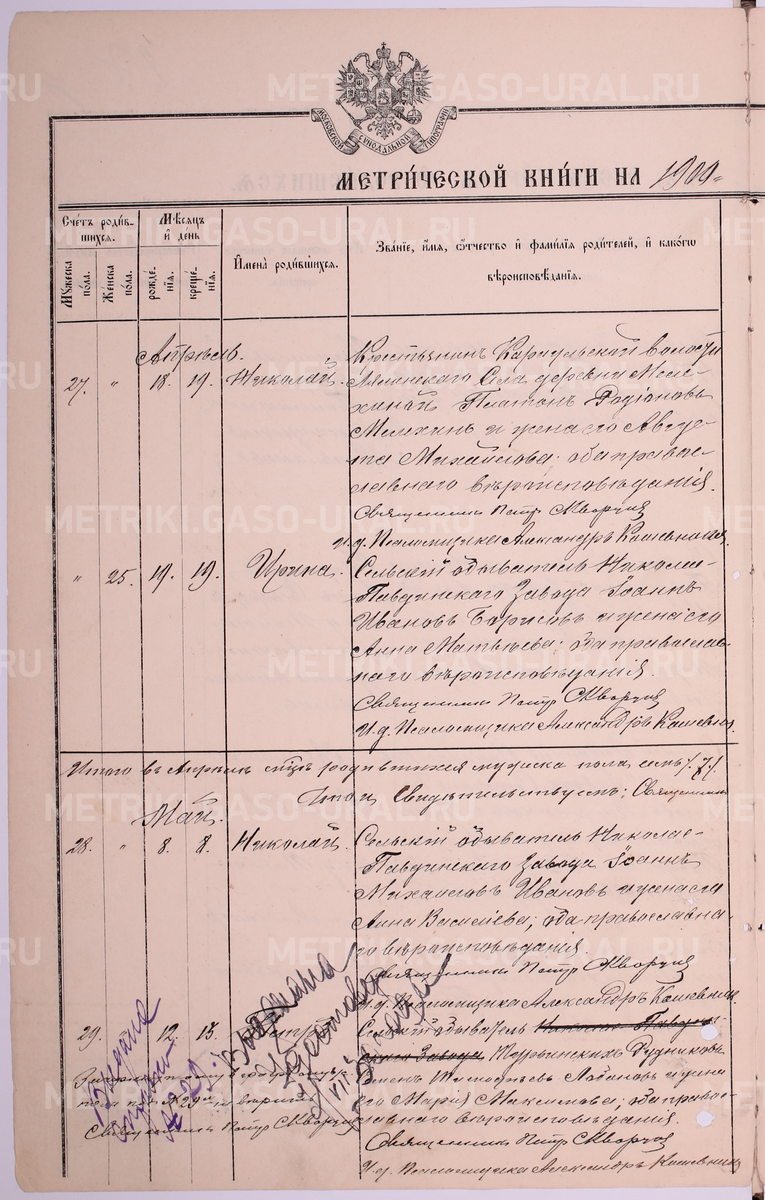 METRIKI.GASO-URAL.RU
МОСКОВСКОЙ СѴНОДАЛЬНОЙ ТИПОГРАФІИ
МЕТРИ́ЧЕСКОЙ КНИ́ГИ НА 1900
Счетъ роди́вшихся.
Мꙋ́жеска по́ла.
Же́нска по́ла.
Мѣ́сяцъ и҆ де́нь
рожде́нїѧ.
креще́нїѧ.
И҆мена̀ роди́вшихсѧ.
Зва́нїе, и҆́мѧ, ѻ҆́тчество и҆ фами́лїѧ роди́телей, и҆ како́гѡ вѣроисповѣ́данїѧ.
Апрѣль.
27. " 18. 19. Николай.
Крестьянинъ волости
Лялинскаго Села деревни Меле-
хиной Платонъ Родіоновъ
Мелехинъ и жена его Авгус-
та Михайлова; оба правос-
лавнаго вѣроисповѣданія.
Священникъ Петръ Скворцовъ
И. д. Псаломщика Александръ
" 25. 19. 19. Ирина.
Сельскій обыватель Николае-
Павдинскаго Завода Іоаннъ
Ивановъ Борисовъ и жена его
Анна Матвѣева; оба православ-
наго вѣроисповѣданія.
Священникъ Петръ Скворцовъ
И. д. Псаломщика Александръ
Итого въ Апрѣлѣ мѣсяцѣ родившихся мужеска пола семь /7/
Свидѣтельствуемъ: Священникъ
Май.
28. " 8. 8. Николай.
Сельскій обыватель Николае-
Павдинскаго Завода Іоаннъ
Михайловъ Ивановъ и жена его
Анна Василіева; оба православна-
го вѣроисповѣданія.
Священникъ Петръ Скворцовъ
И. д. Псаломщика Александръ
29. 12. 13.
Сельскій обыватель
Рудниковъ
Семенъ Тимофѣевъ Лобановъ и жена
его Марія Максимова; оба правос-
лавнаго вѣроисповѣданія.
Священникъ Петръ Скворцовъ
И. д. Псаломщика Александръ
Священникъ Петръ Скворцовъ
Выдана